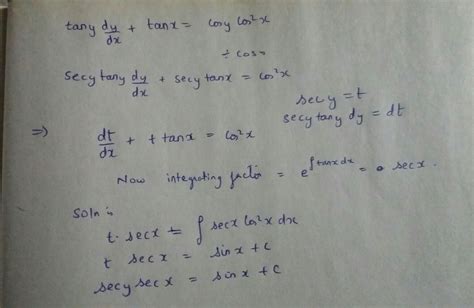 tany dy/dx + tanx = cosy cos²x
÷ cos
secy tany dy/dx + secy tanx = cos²x
sec y = t
secy tany dy = dt
⇒ dt/dx + t tanx = cos²x
Now integrating factor = e^∫tanx dx = secx.
Soln is
t. secx = ∫ secx cos²x dx
t secx = sinx + c
secy secx = sinx + c